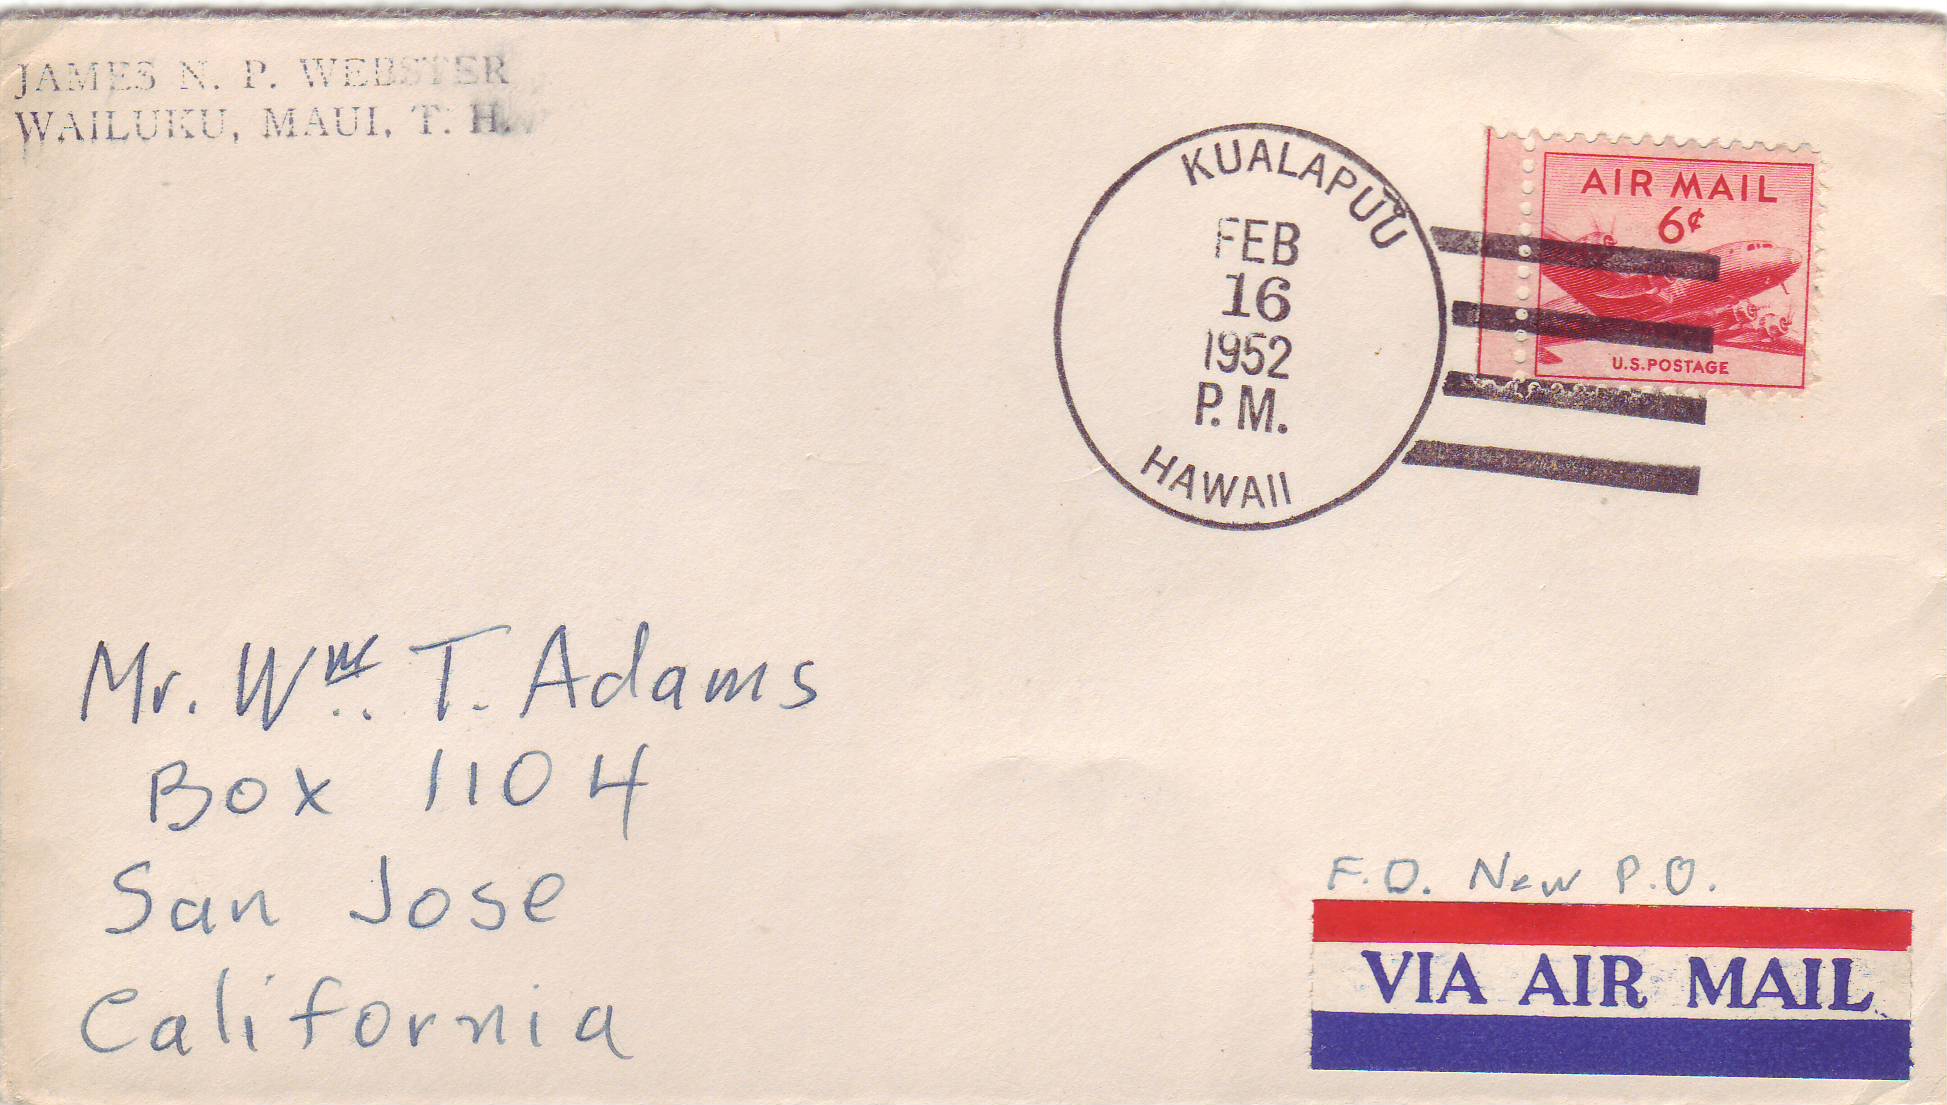 JAMES N. P. WEBSTER
WAILUKU, MAUI, T. H.
KUALAPUU
FEB
16
1952
P.M.
HAWAII
AIR MAIL
6¢
U.S.POSTAGE
Mr. Wm. T. Adams
Box 1104
San Jose
California
F.D. New P.O.
VIA AIR MAIL